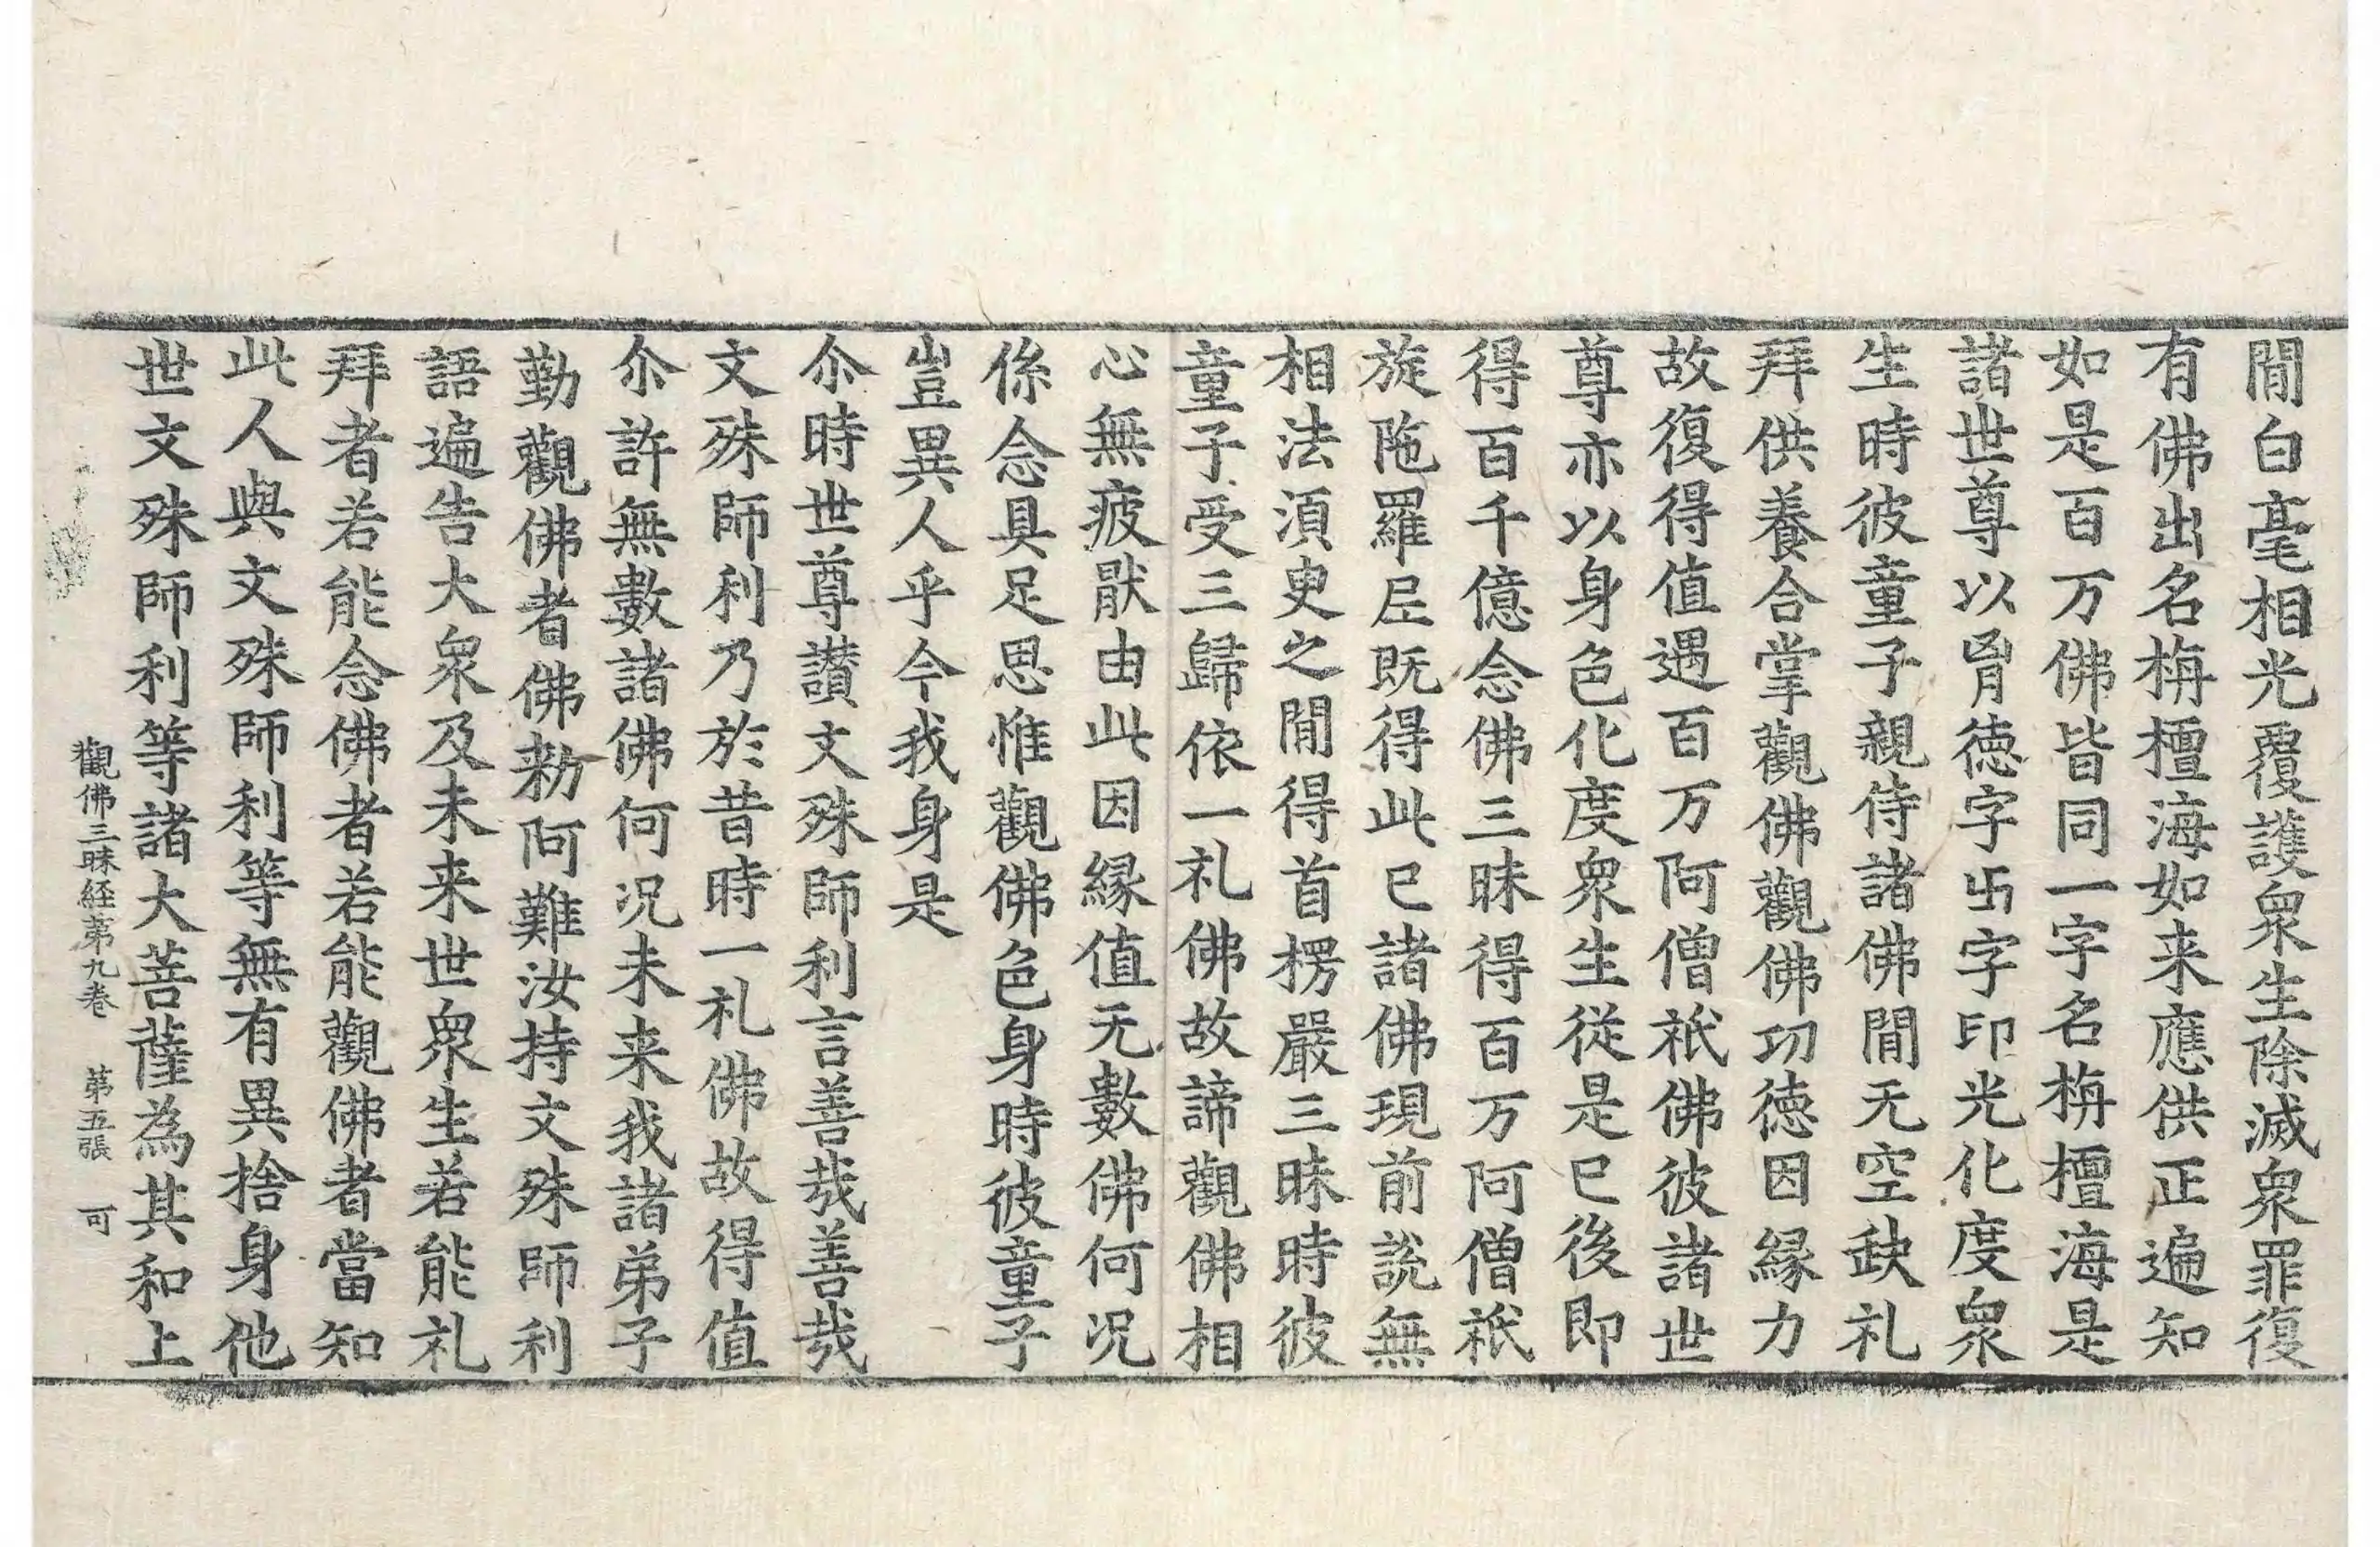 閒白毫相光覆護衆生除滅衆罪復
有佛出名栴檀海如来應供正遍知
如是百万佛皆同一字名栴檀海是
諸世尊以胷徳字卐字印光化度衆
生時彼童子親侍諸佛閒无空缺礼
拜供養合掌觀佛觀佛功徳因縁力
故復得值遇百万阿僧祇佛彼諸世
尊亦以身色化度衆生従是已後即
得百千億念佛三昧得百万阿僧祇
旋陁羅尼既得此已諸佛現前說無
相法湏臾之閒得首楞嚴三昧時彼
童子受三歸依一礼佛故諦觀佛相
心無疲猒由此因縁值无數佛何况
係念具足思惟觀佛色身時彼童子
豈異人乎今我身是
尒時世尊讃文殊師利言善㢤善㢤
文殊師利乃於昔時一礼佛故得值
尒許無數諸佛何况未来我諸弟子
勤觀佛者佛勑阿難汝持文殊師利
語遍告大衆及未来世衆生若能礼
拜者若能念佛者若能觀佛者當知
此人與文殊師利等無有異捨身他
世文殊師利等諸大菩薩為其和上
觀佛三昧経苐九卷 苐五張 可